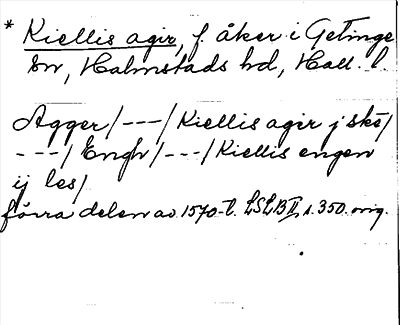 * Kiellis agir, f. åker i Getinge
sn, Halmstads hd, Hall. l.
Agger/---/Kiellis agir j skö/
---/Engh/---/Kiellis engen
ij les/
förra delen av 1570-t. LSLB II, s. 350. orig.